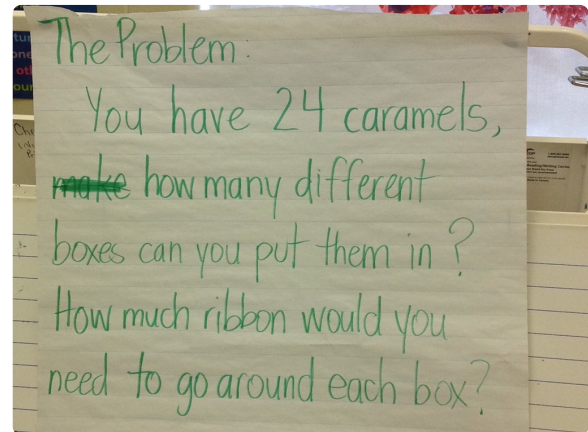 The Problem:
You have 24 caramels,
make how many different
boxes can you put them in?
How much ribbon would you
need to go around each box?